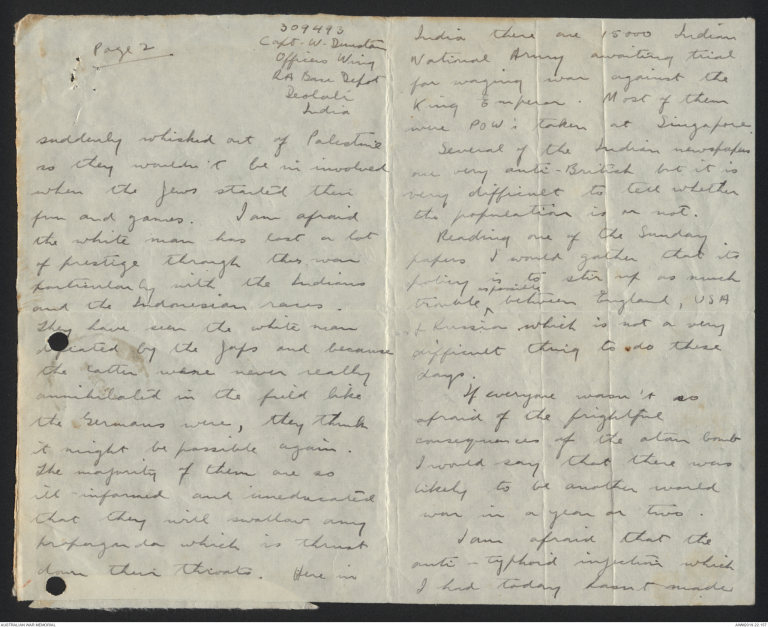 Page 2
309493
Capt. W. Dunstan
Officers Wing
RA Base Depot
Deolali
India
suddenly whisked out of Palestine
so they wouldn't be in involved
when the Jews started their
fun and games. I am afraid
the white man has lost a lot
of prestige through this war
particularly with the Indians
and the Indonesian races.
They have seen the white man
defeated by the Japs and because
the latter were never really
annihilated in the field like
the Germans were, they think
it might be possible again.
The majority of them are so
ill-informed and uneducated
that they will swallow any
propaganda which is thrust
down their throats. Here in
India there are 15000 Indian
National Army awaiting trial
for waging war against the
King Emperor. Most of them
were POW's taken at Singapore.
Several of the Indian newspapers
are very anti-British but it is
very difficult to tell whether
the population is or not.
Reading one of the Sunday
papers I would gather that its
policy is to stir up as much
trouble as possible between England, USA
& Russia which is not a very
difficult thing to do these
days.
If everyone wasn't so
afraid of the frightful
consequences of the atom bomb
I would say that there was
likely to be another world
war in a year or two.
I am afraid that the
anti-typhoid injection which
I had today hasn't made
AUSTRALIAN WAR MEMORIAL